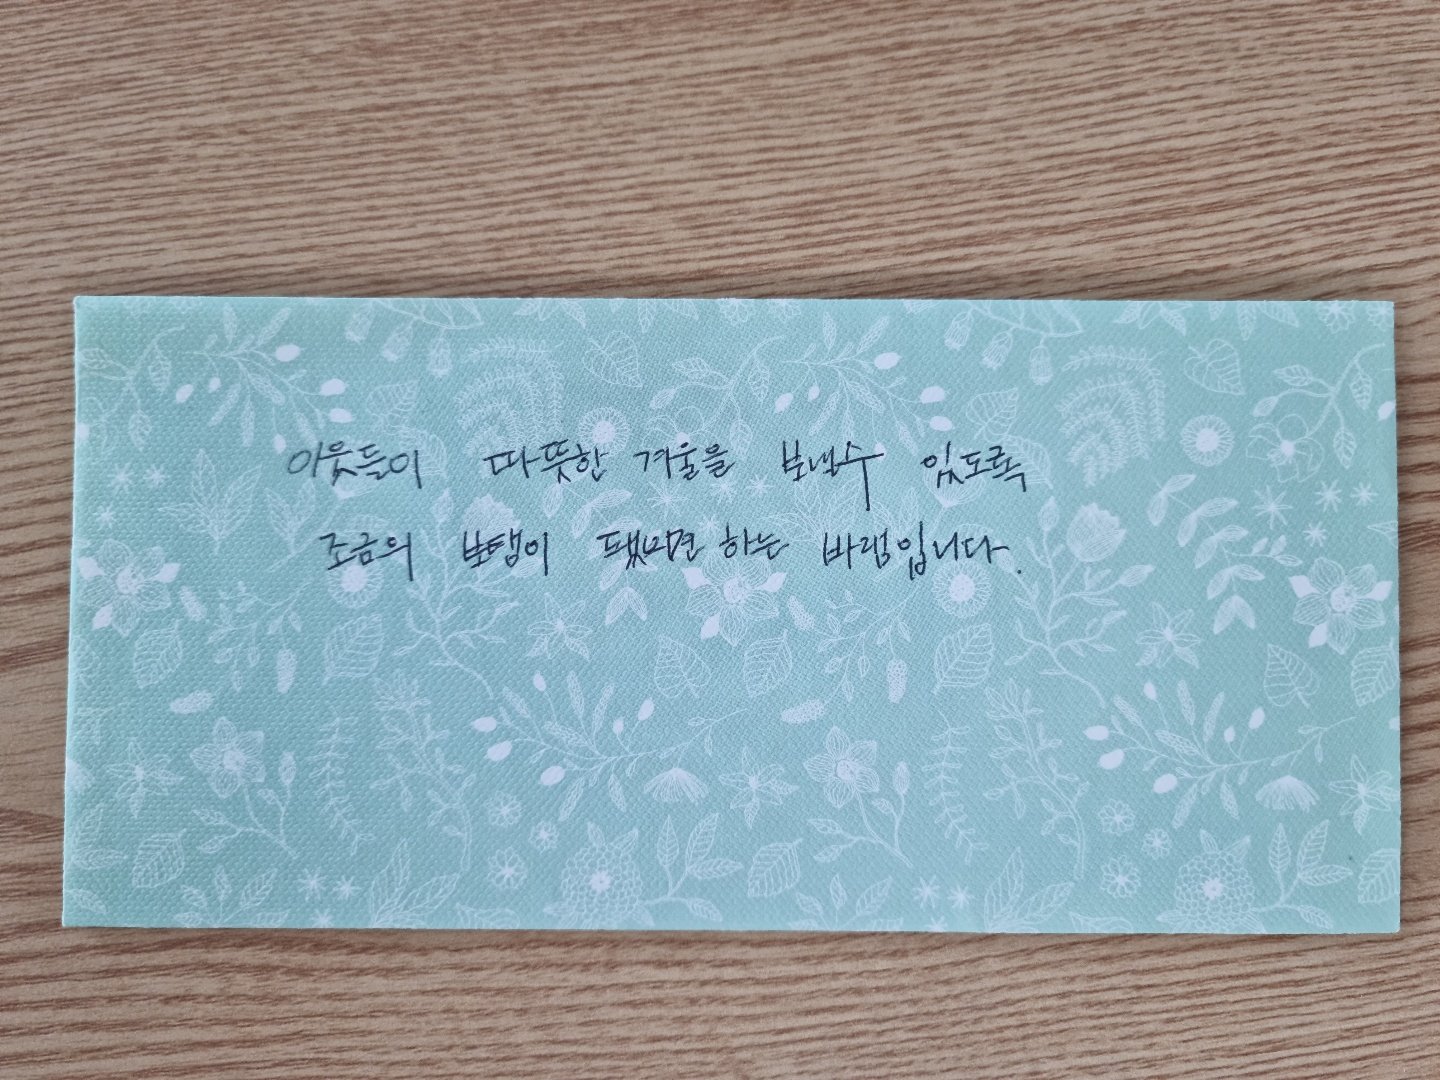 이웃들이 따뜻한 겨울을 보낼수 있도록
조금의 보탬이 됐으면 하는 바램입니다.